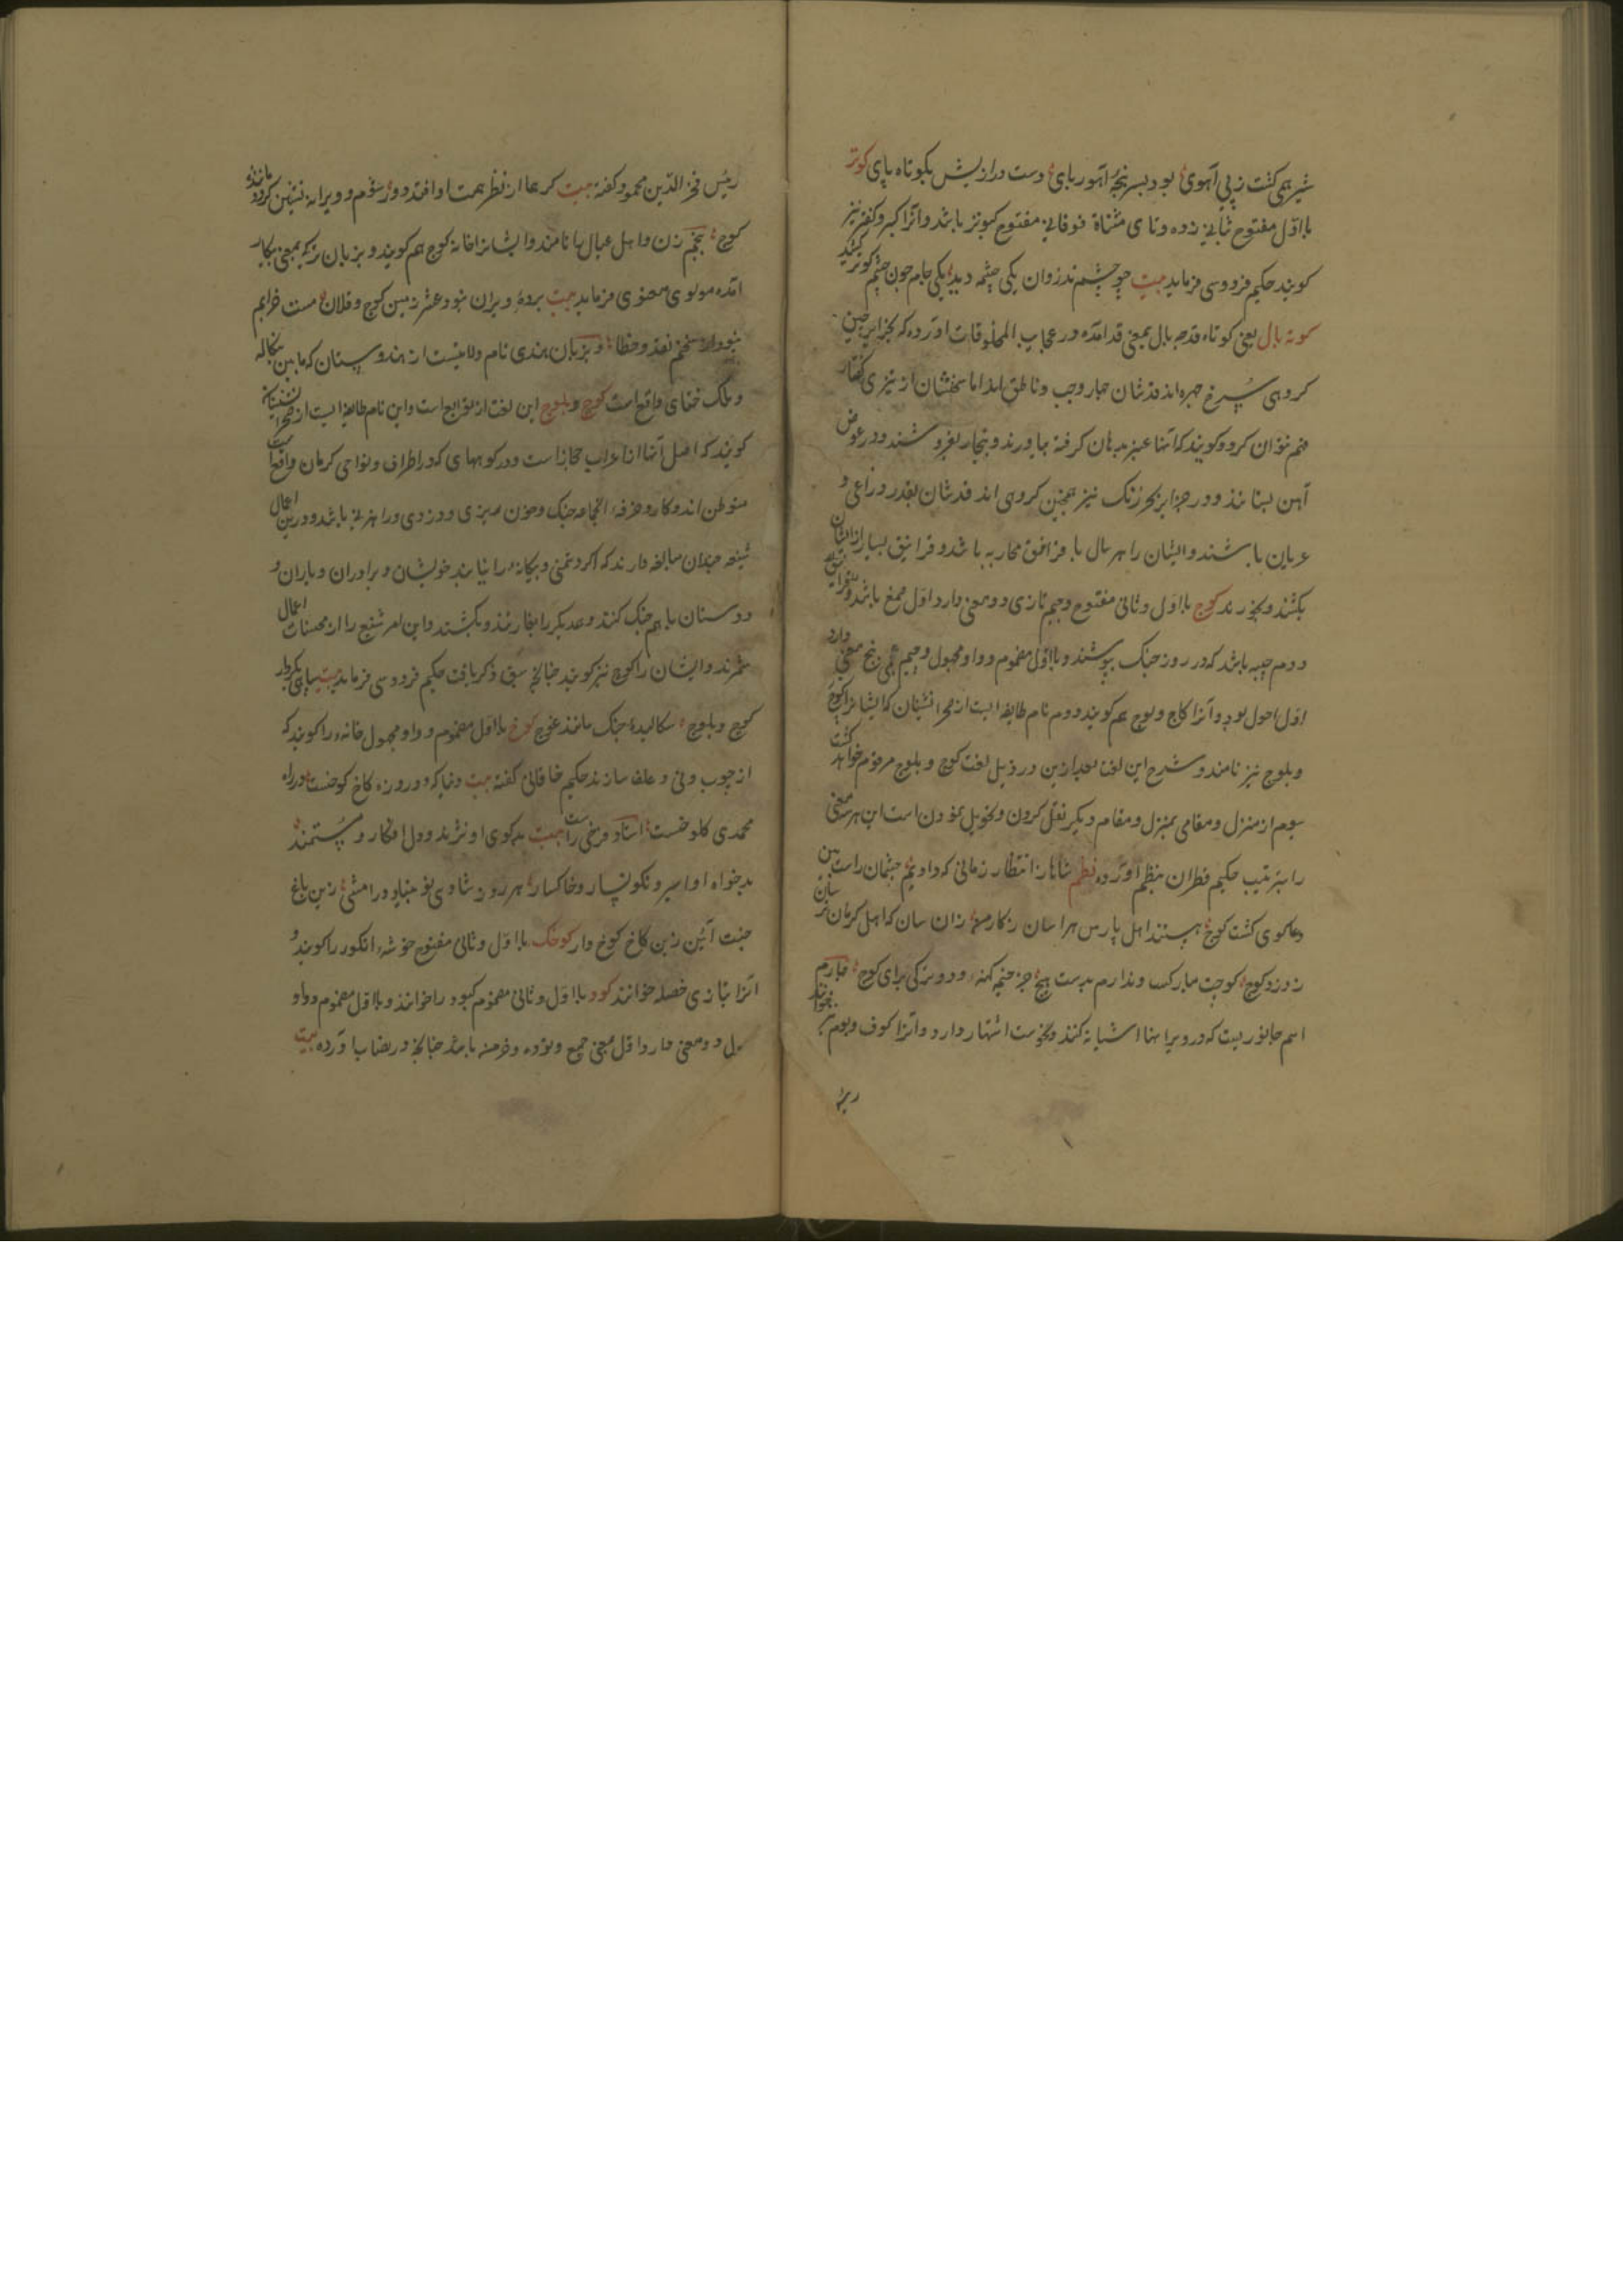 شیر همی کشت ز پی آهوی بود بسرپنجه آهوربای دست دراز پیش بکوتاه پای کوتر
با اول مفتوح بثانی زده و تای مثناة فوقانی مفتوح کبوتر باشد و آنرا کبتر و کفتر نیز
کویند حکیم فردوسی فرماید بیت چو چشم تذروان یکی چشمه دید یکی جام چون چشم کوتر کشید
کوته بال یعنی کوتاه قد چه بال بمعنی قد آمده در عجایب المخلوقات آورده که بجزایر چین
کروهی سرخ چهره اند قدشان چهار وجب و ناطق اند اما سخنشان از تیزی کفتار
فهم نتوان کرد و کویند که آنها عنبر بدهان کرفته بیاورند و بتجار بفروشند و در عوض
آهن بستانند و در جزایر بحر زنک نیز همچنین کروهی اند قدشان بقدر ذراعی و
عریان باشند و ایشان را هر سال با غرانیق محاربه باشد و غرانیق بسیار از ایشان
بکشند و بخورند کوج با اول و ثانی مفتوح و جیم تازی دو معنی دارد اول صمغ باشد
دوم جبه باشد که در روز جنک پوشند و با اول مضموم و واو مجهول و جیم عجمی پنج معنی دارد
اول احول بود و آنرا کاج و لوچ هم کویند دوم نام طایفه ایست از صحرا نشینان که ایشانرا کوچ
و بلوچ نیز نامند و شرح این لغت بعد ازین در ذیل لغت کوچ و بلوچ مرقوم خواهد کشت
سیوم از منزل و مقامی بمنزل و مقام دیکر نقل کردن و تحویل نمودن است این هر سه معنی
را بترتیب حکیم قطران بنظم آورده نظم شاها ز انتظار زمانی که دادیم چشمان راست بین
دعاکوی کشت کوچ هستند اهل پارس هراسان ز کار من زان سان که اهل کرمان ترسان
ز دزد کوچ کوچت مبارکست و ندارم بدست هیچ جز خیمه کهنه و دو ترکی برای کوچ چهارم
اسم جانوریست که در ویرانها آشیانه کند و بنحوست اشتهار دارد و آنرا کوف و بوم نیز خوانند
رئیس فخر الدین محمود کفته بیت کر عا از نظر همت او افتد دور شوم و ویرانه نشین کردد مانند
کوچ پنجم زن و اهل عیال را نامند و ایشانرا خانه کوچ هم کویند و بزبان ترکی بمعنی بکار
آمده مولوی معنوی فرماید بیت برده ویران نبود عشر زمین کوچ و قلان مست خرابم
و بزبان هندی نام ولایتیست از هندوستان که مابین بنکاله
و ملک ختای واقع است کوچ و بلوچ این لغت از توابع است و این نام طایفه ایست از صحرا نشینان
کویند که اصل آنها از اعراب حجاز است و در کوههای که در اطراف و نواحی کرمان واقع است
متوطن اند و کار و حرفه آنجماعه جنک و خون ریزی و دزدی و راهزنی باشد و درین اعمال
شنیعه چندان مبالغه دارند که اکر دشمنی و بیکانه را نیابند خویشان و برادران و یاران و
دوستان با هم جنک کنند و همدیکر را بغارتند و بکشند و این امر شنیع را از محسنات اعمال
شمرند و ایشان را کوچ نیز کویند چنانچه سبق ذکر یافت حکیم فردوسی فرماید بیت سپاهی بکردار
کوچ و بلوچ سکالیده جنک مانند غوچ کوخ با اول مضموم و واو مجهول خانه را کویند که
از چوب و نی و علف سازند حکیم خاقانی کفته بیت
استاد فرخی راست بیت بدکوی او نژند و دل افکار و مستمند
بدخواه او اسیر و نکونسار و خاکسار هر روز شادی نو بیناد و رامشی زین باغ
جنت آئین زین کاخ کوخ وار کوخک با اول و ثانی مفتوح خوشه انکور را کویند و
آنرا بتازی خصله خوانند کود با اول و ثانی مضموم کبود را خوانند و با اول مضموم و واو
دو معنی دارد اول بمعنی جمع و توده و خرمن باشد چنانچه در نصاب آورده بیت